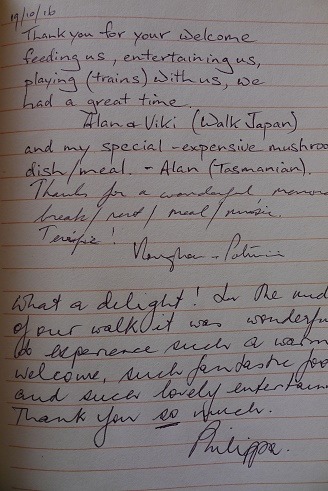 19/10/16
Thank you for your welcome
feeding us, entertaining us,
playing (trains) with us, we
had a great time.
Alan & Viki (Walk Japan)
and my special - expensive mushroo
dish/meal. - Alan (Tasmanian).
Thanks for a wonderful, memor
break/rest/meal/music.
Terrific!
What a delight! In the mid
of our walk it was wonderfu
to experience such a warm
welcome, such fantastic foo
and such lovely entertain
Thank you so much.
Philippa.